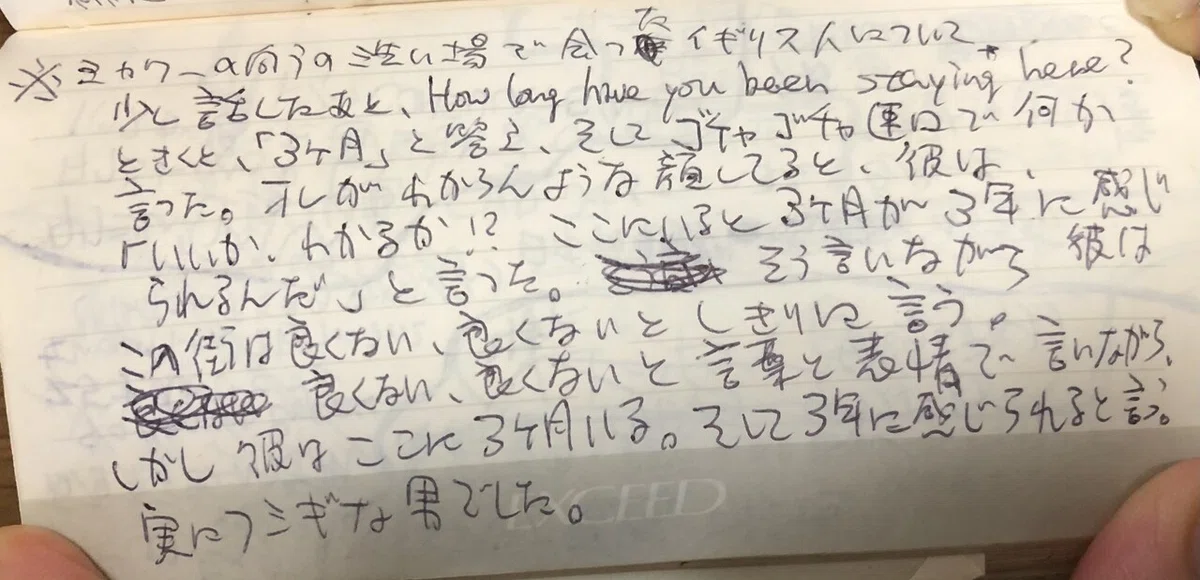 ※ミカワーの向うの遊い場で会った イギリス人について
少し話したあと、How long have you been staying* here?
ときくと、「3ヶ月」と答え、そしてゴチャゴチャ運口で何か
言った。オレがわからんような顔してると、彼は、
「いいか、わかるか!? ここにいると3ヶ月が3年に感じ
られるんだ」と言った。 そう言いながら 彼は
この街は良くない、良くないとしきりに言う。
良くない、良くないと言葉と表情で言いながら、
しかし彼はここに3ヶ月いる。そして3年に感じられると言う。
実にフシギな男でした。
EXCEED